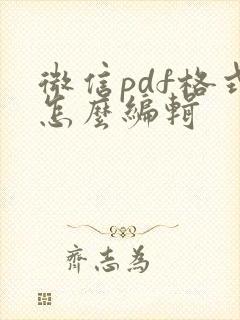 微信pdf格式
怎麼編輯
齊志為